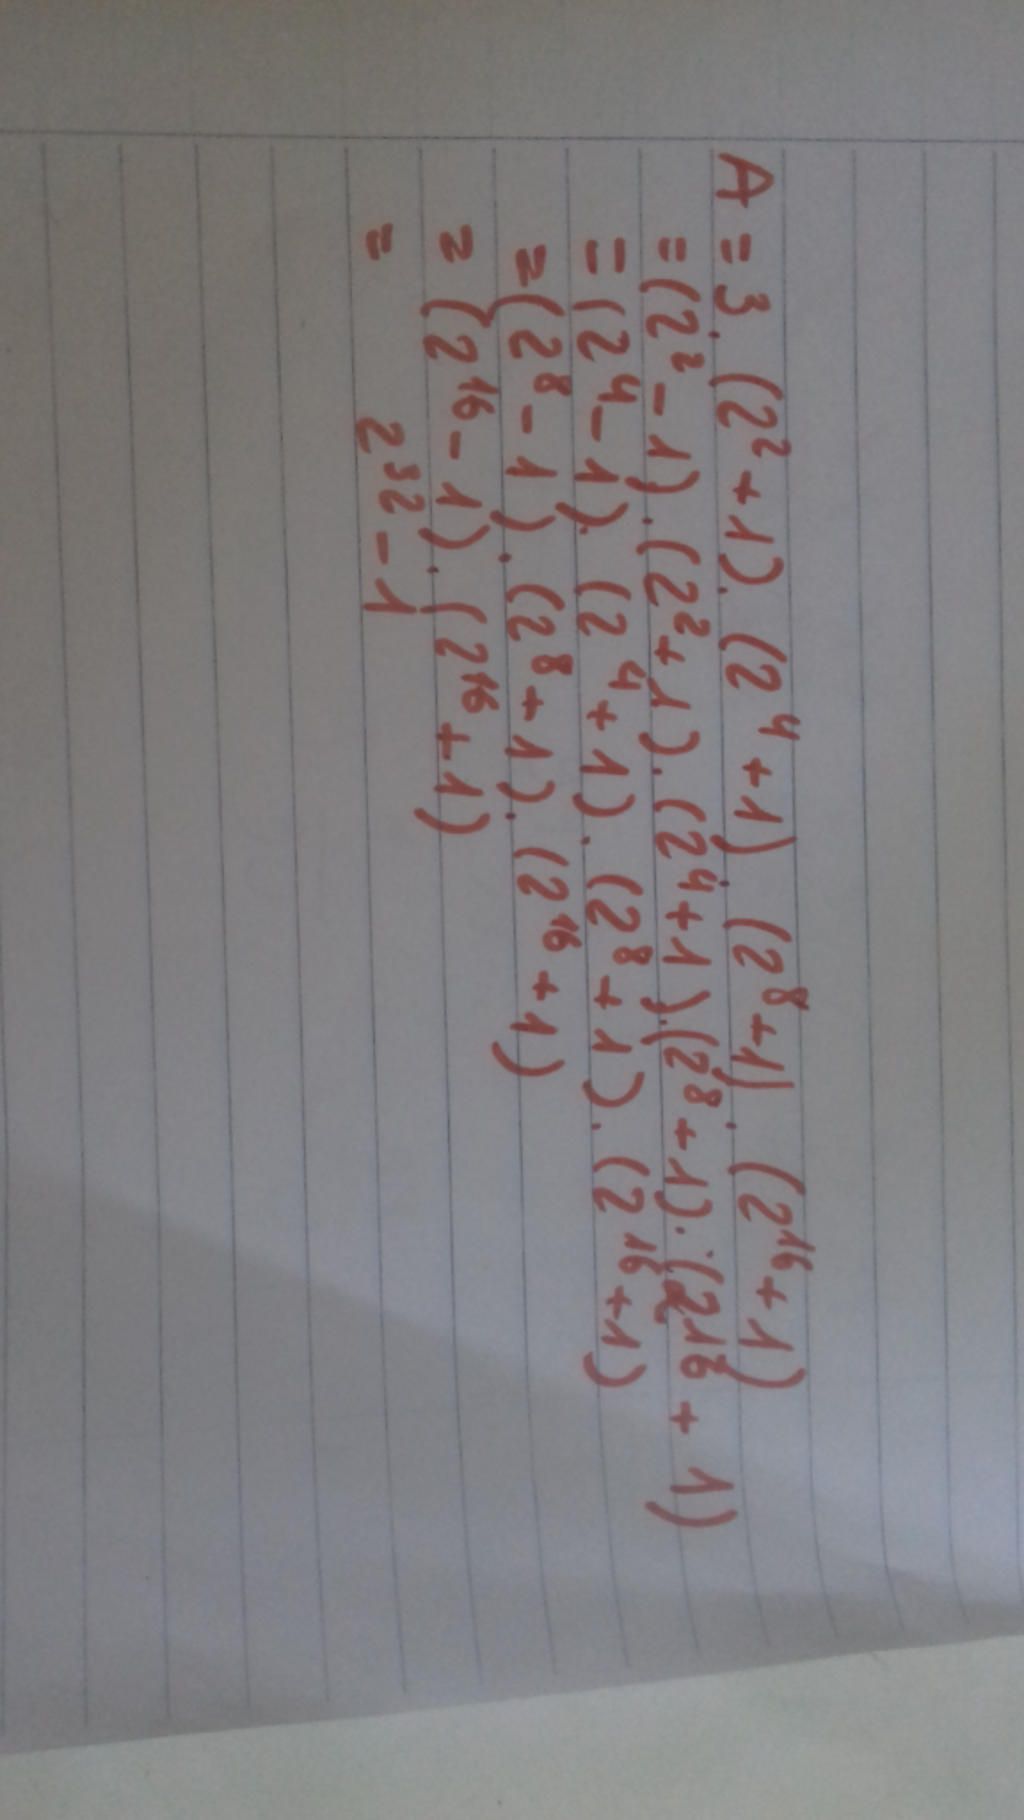 A = 3. (2² + 1). (2⁴ + 1). (2⁸ + 1). (2¹⁶ + 1)
= (2² - 1). (2² + 1). (2⁴ + 1). (2⁸ + 1). (2¹⁶ + 1)
= (2⁴ - 1). (2⁴ + 1). (2⁸ + 1). (2¹⁶ + 1)
= (2⁸ - 1). (2⁸ + 1). (2¹⁶ + 1)
= (2¹⁶ - 1). (2¹⁶ + 1)
= 2³² - 1